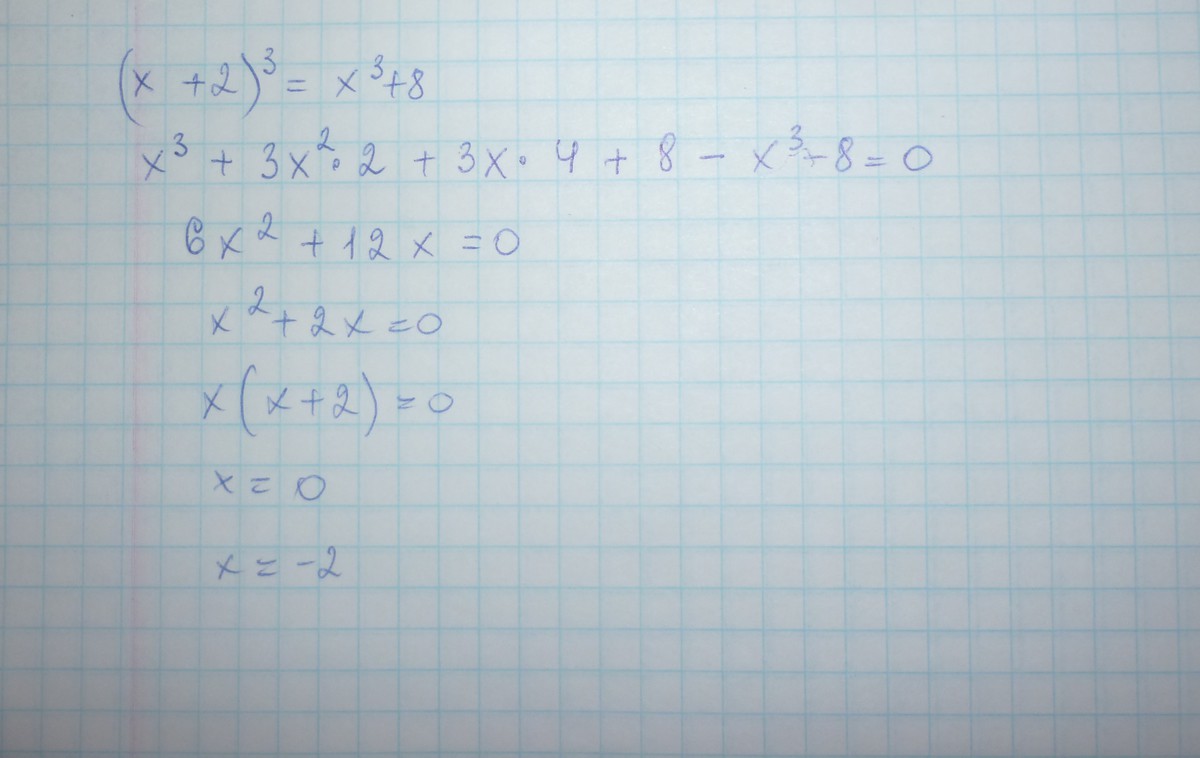 (x + 2)³ = x³ + 8
x³ + 3x² · 2 + 3x · 4 + 8 - x³ - 8 = 0
6x² + 12x = 0
x² + 2x = 0
x(x + 2) = 0
x = 0
x = -2